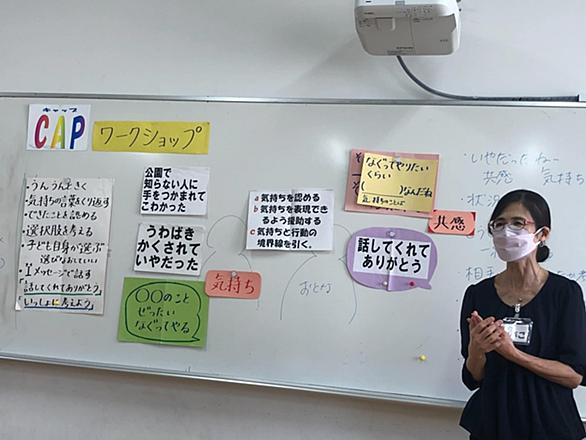 キャップ
CAP
ワークショップ
・うんうんときく
・気持ちの言葉をくり返す
・できたことを認める
・選択肢を考える
・子ども自身が選ぶ
・Iメッセージで話す
・話してくれてありがとう
・いっしょに考えよう
公園で
知らない人に
手をつかまれて
こわかった
うわばき
かくされて
いやだった
〇〇のこと
ぜったい
なぐってやる
気持ち
a 気持ちを認める
b 気持ちを表現でき
るよう援助する
c 気持ちと行動の
境界線を引く。
おとな
なぐってやりたい
くらい
( )なんだね
気持ちのことば
共感
話してくれて
ありがとう
・いやだったね
共感 気持ち
・状況
相手